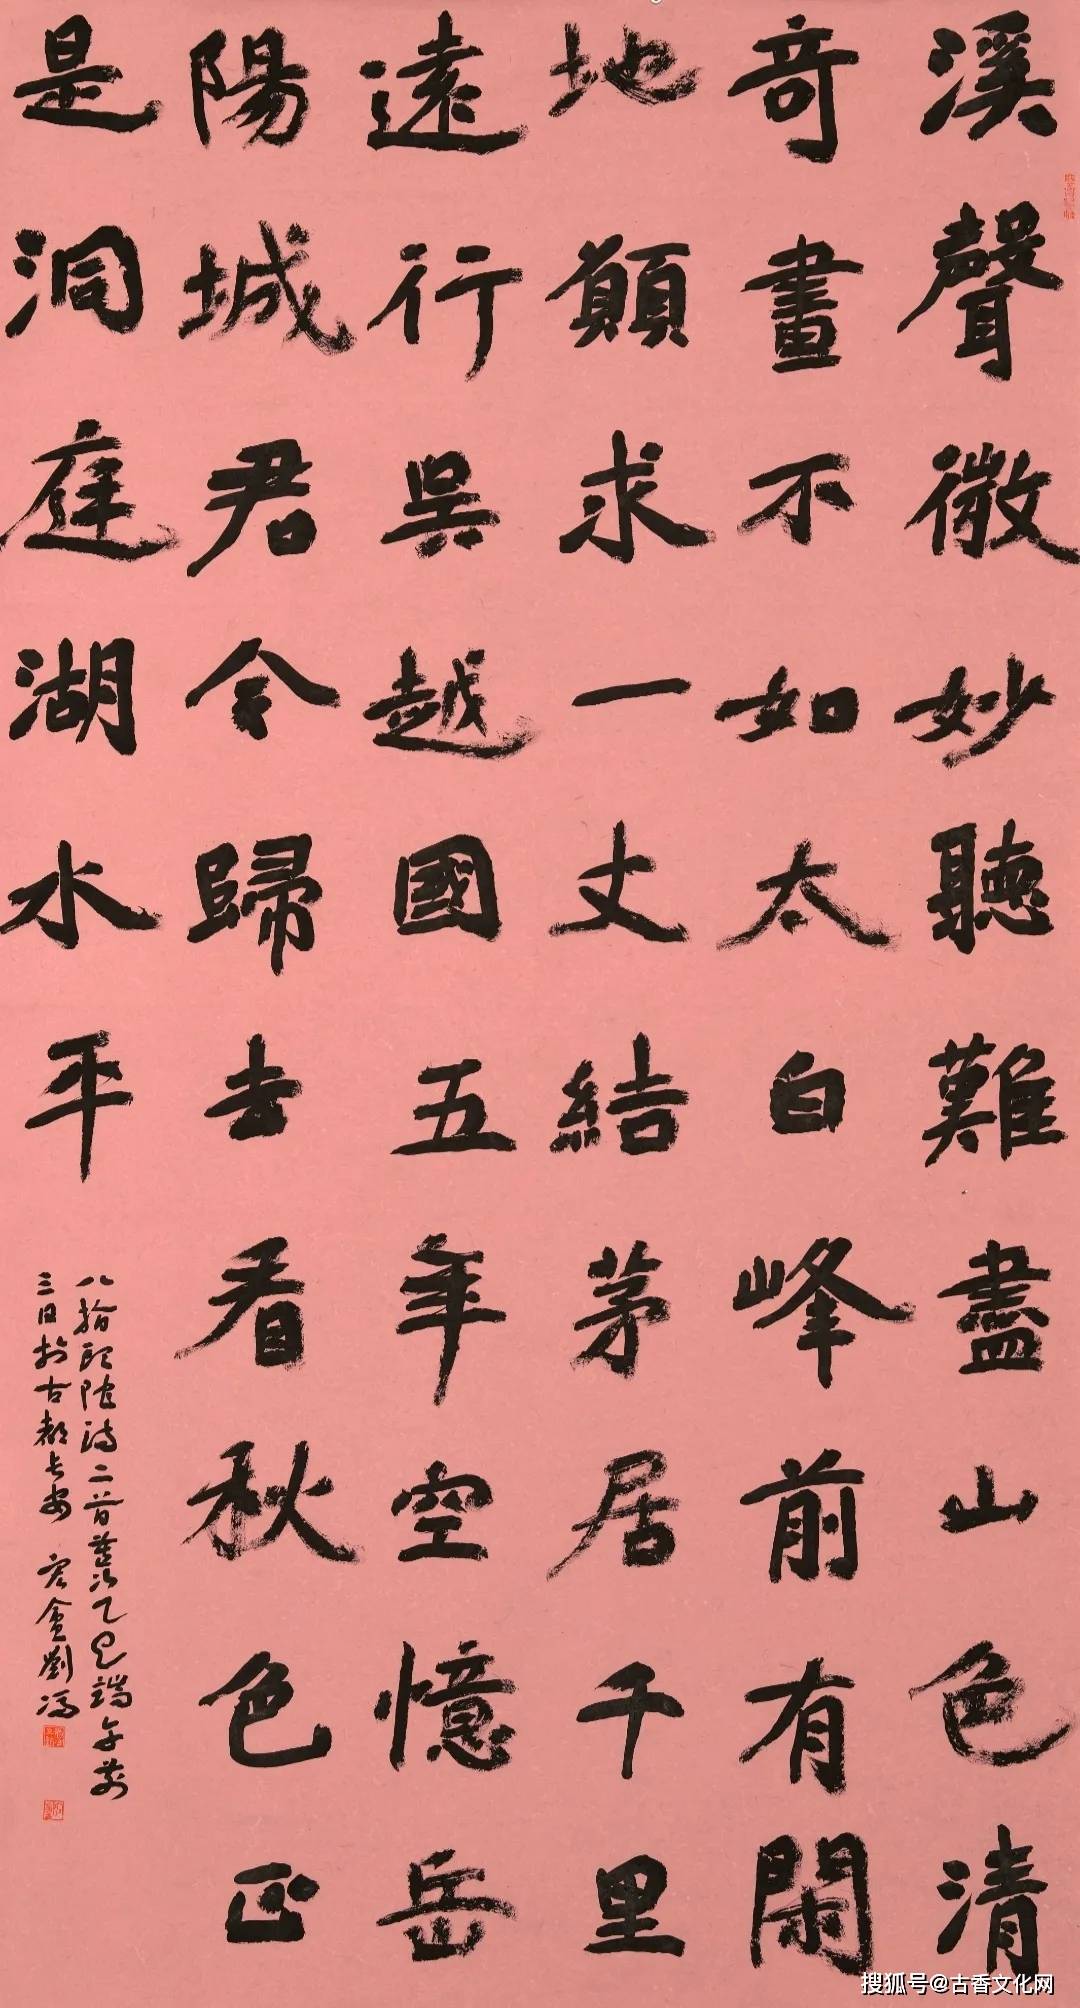 溪聲微妙聽難盡山色清
奇畫不如太白峰前有閑
地願求一丈結茅居千里
遠行吳越國五年空憶岳
陽城君今歸去看秋色正
是洞庭湖水平
八指頭陀詩二首乙巳端午前
三日於古都長安 劉
搜狐号@古香文化网